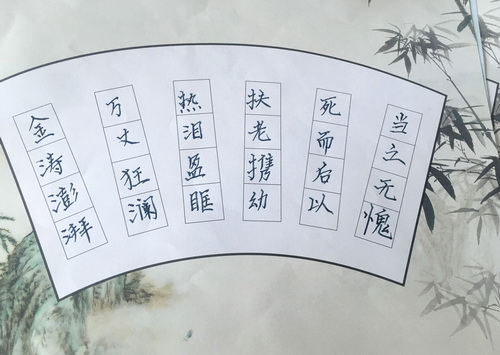 当立无愧
死而后以
扶老携幼
热泪盈眶
万丈狂澜
金涛澎湃